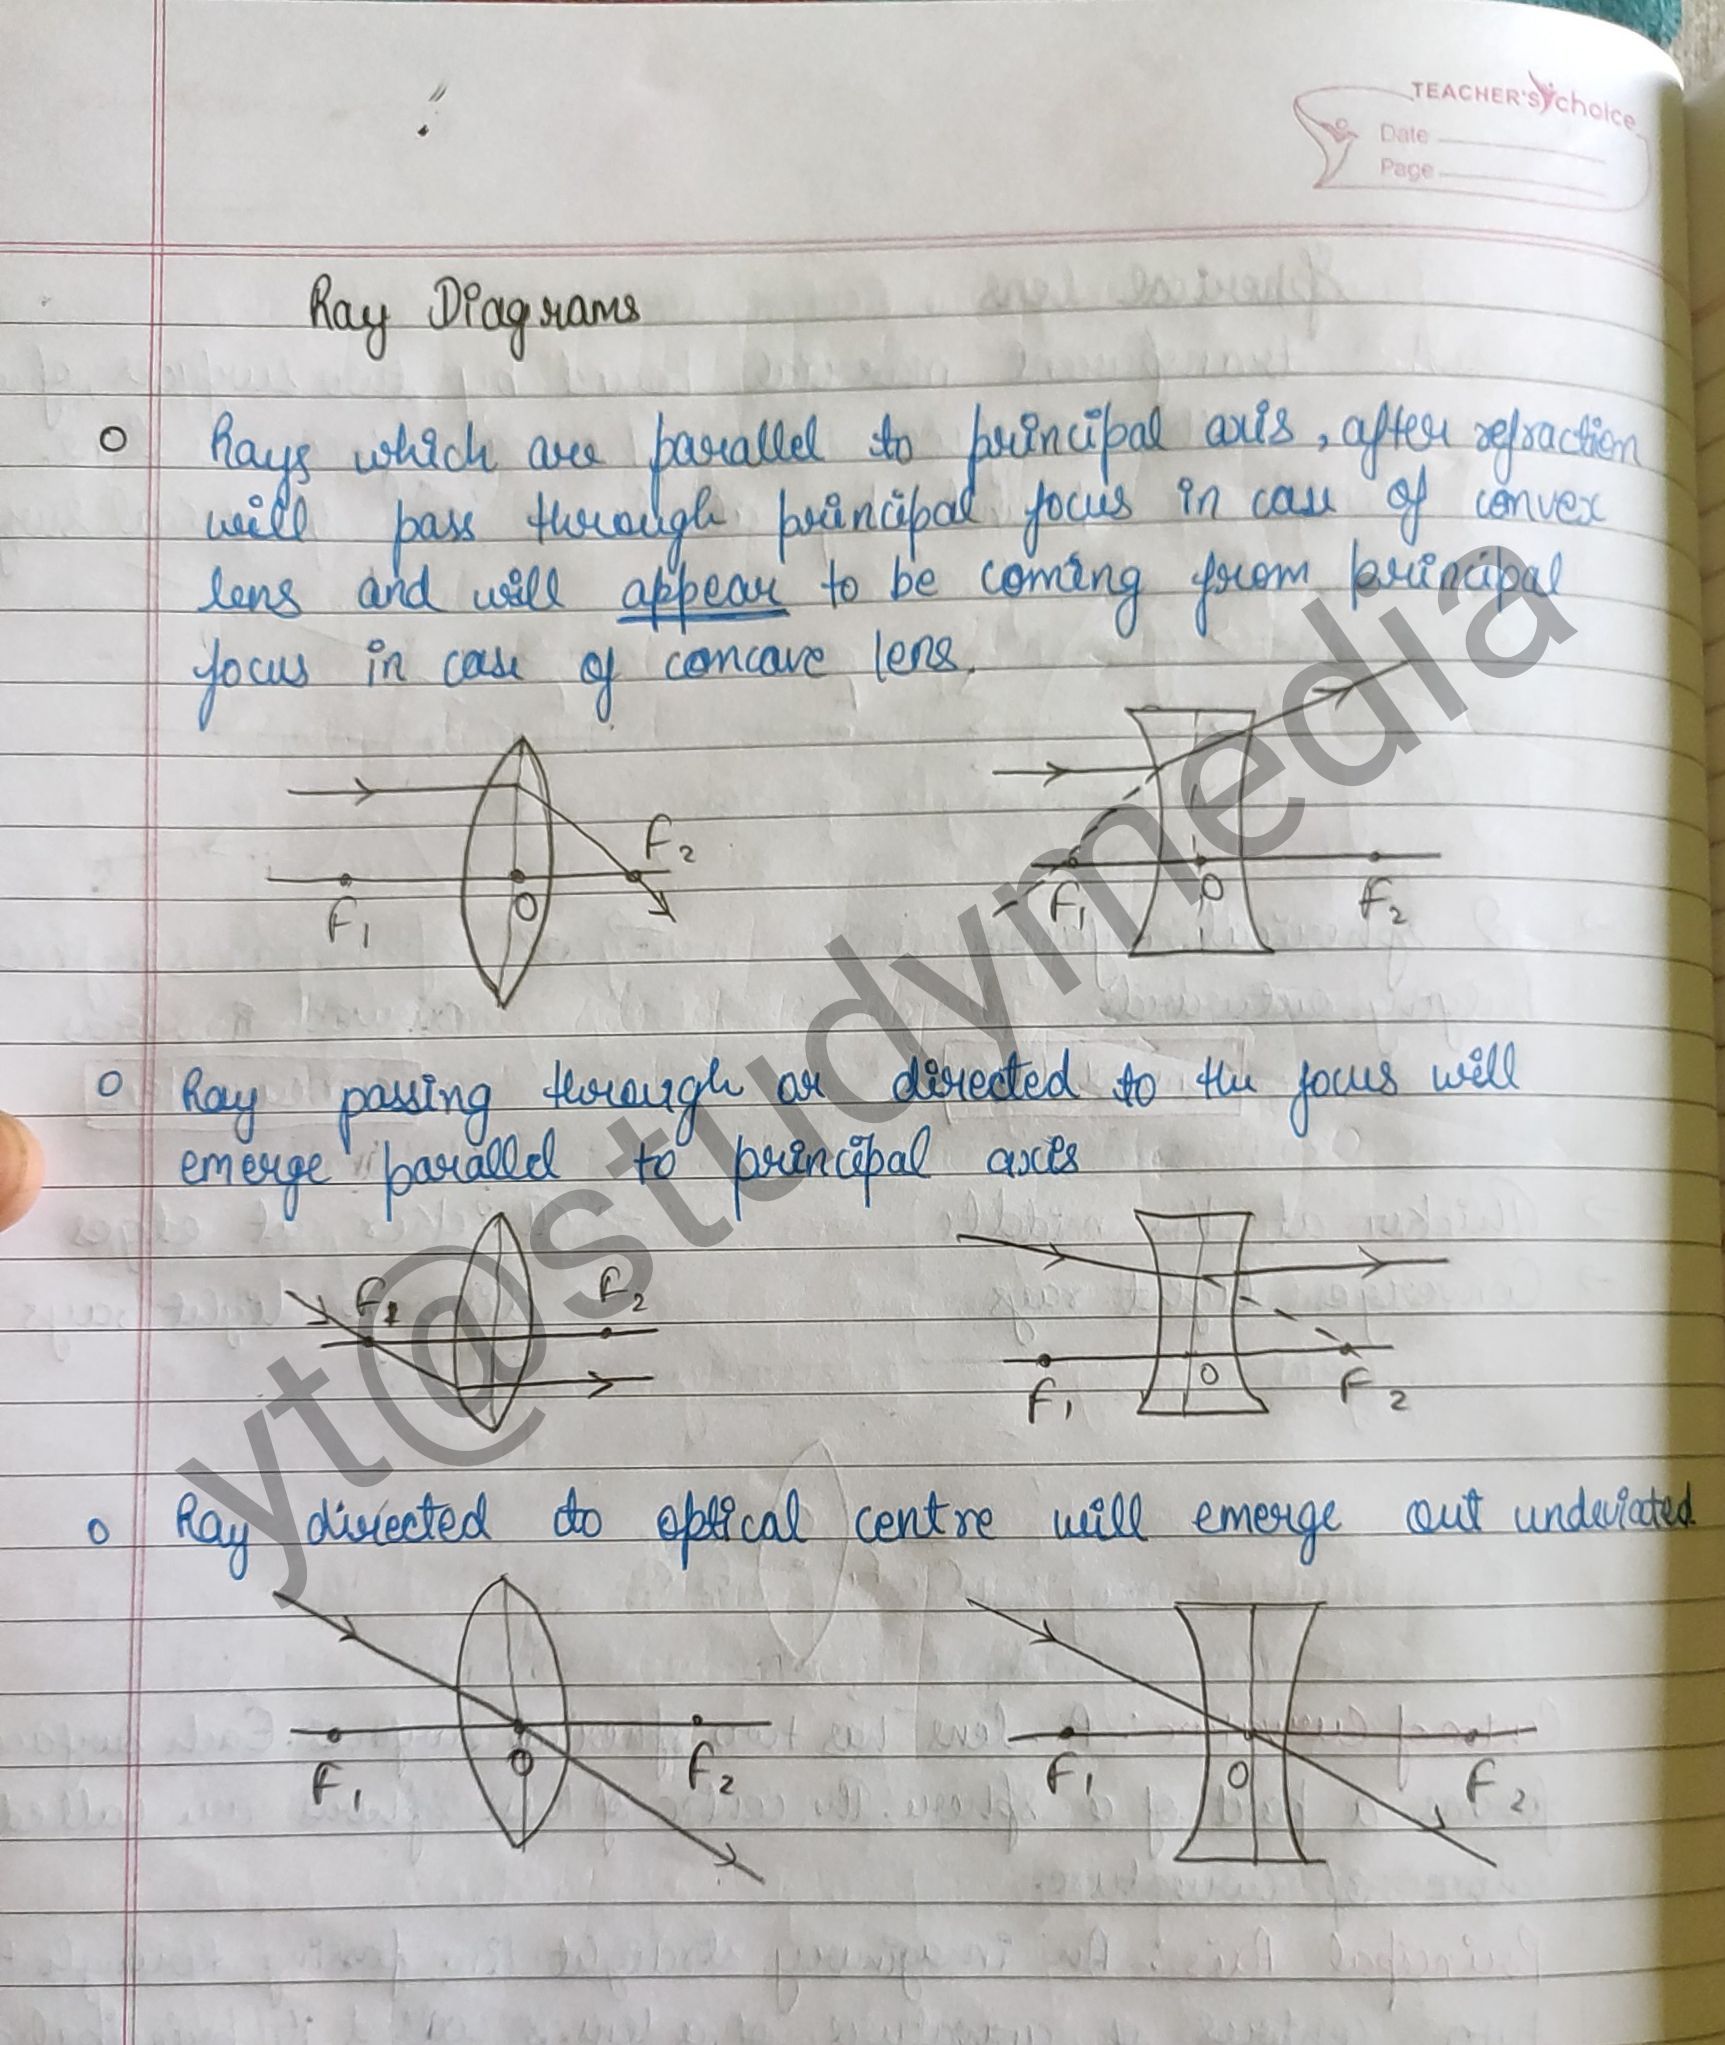 TEACHER'S choice
Date
Page
Ray Diagrams
o Rays which are parallel to principal axis, after refraction
will pass through principal focus in case of convex
lens and will appear to be coming from principal
focus in case of concave lens.
F2
F1
O
F1
O
F2
o Ray passing through or directed to the focus will
emerge parallel to principal axis
F1
F2
F1
O
F2
o Ray directed to optical centre will emerge out undeviated
F1
O
F2
F1
O
F2
yt@studymedia